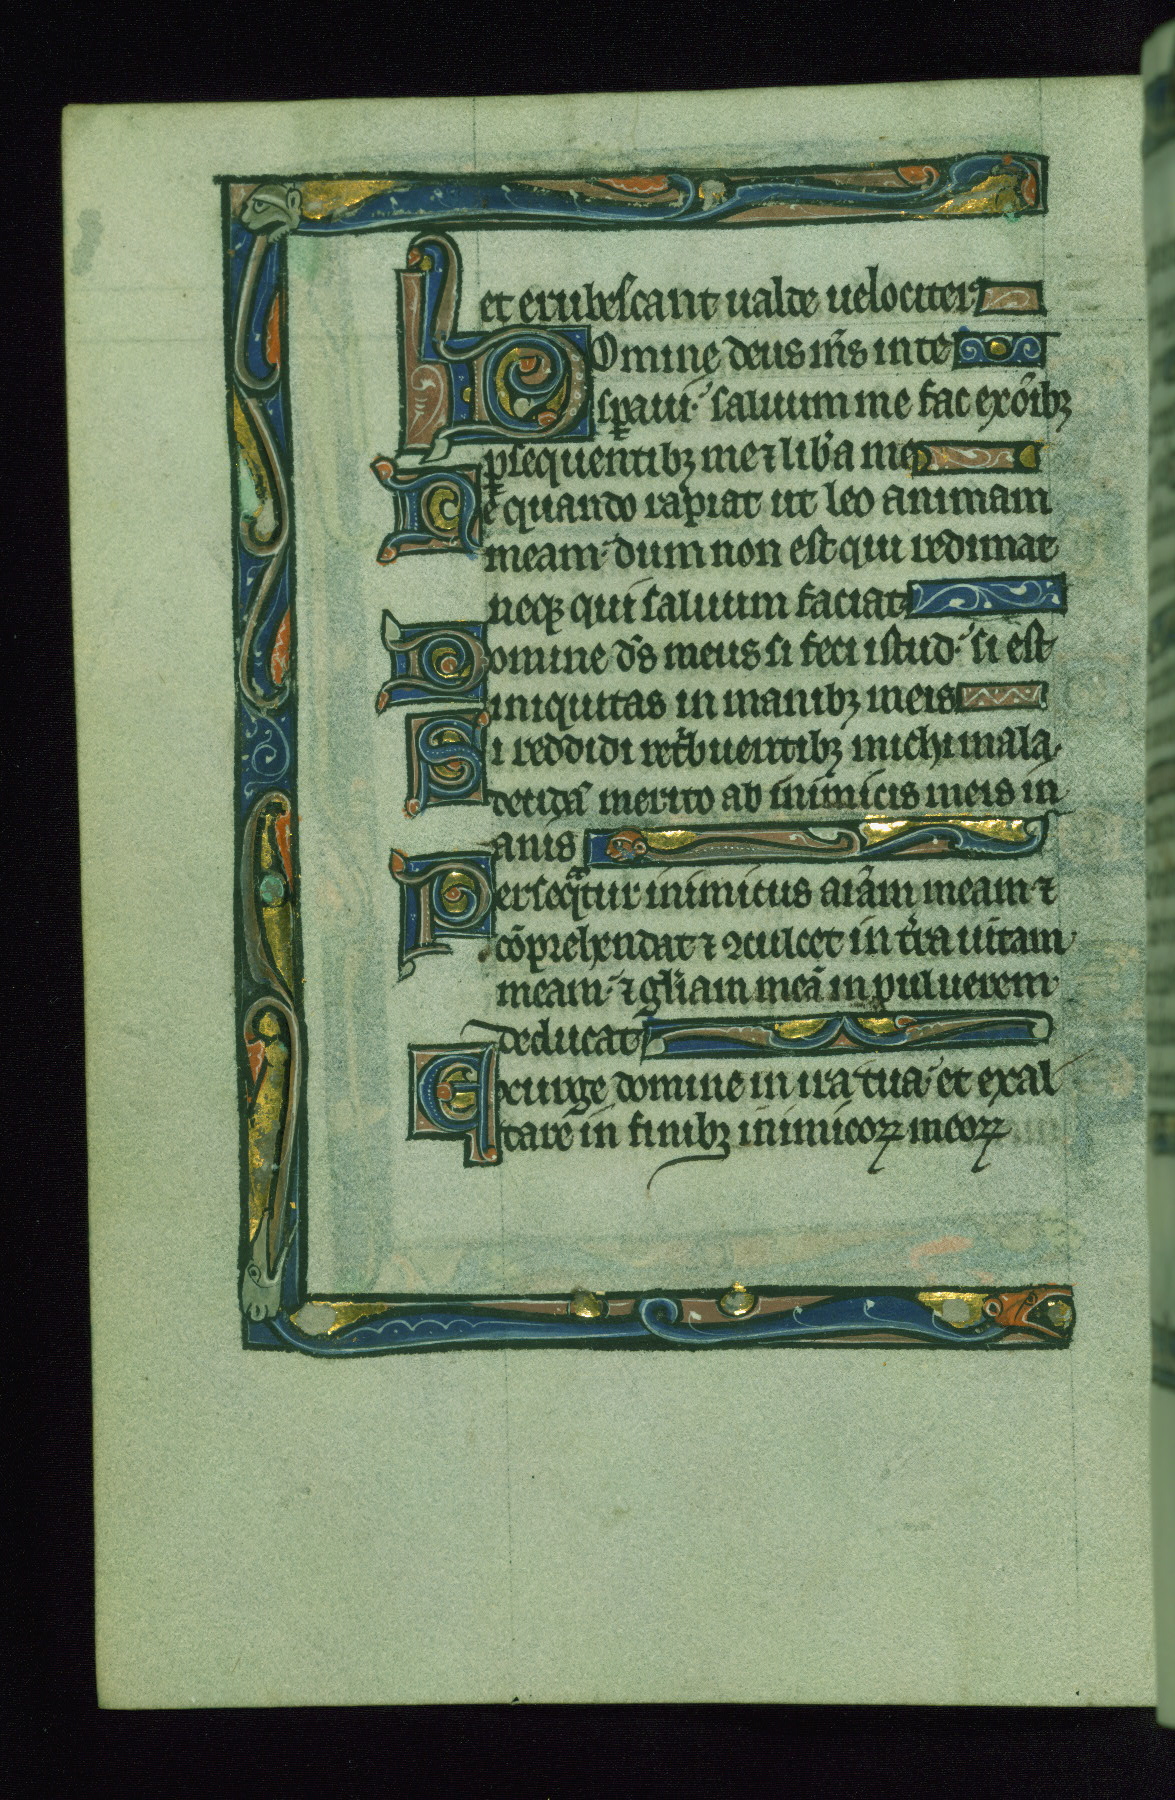 et erubescant ualde uelociter
Domine deus mr̄s in te
sꝑaui· saluum me fac ex oīb;
ꝑsequentib; me ⁊ lib̄a me
Ne quando rapiat ut leo animam
meam· dum non est qui redimat
neq; qui saluum faciat
Domine d̄s meus si feci istud· si est
iniquitas in manib; meis
Si reddidi ret̄buentib; michi mala·
decidā merito ab inimicis meis in
anis
Perseq̄tur inimicus aīam meam ⁊
cōprehendat ⁊ ꝯculcet in t̄ra uitam
meam· ⁊ gl̄iam meā in puluerem
deducat
Exurge domine in ira tua· et exal
tare in finib; inimicoꝝ meoꝝ